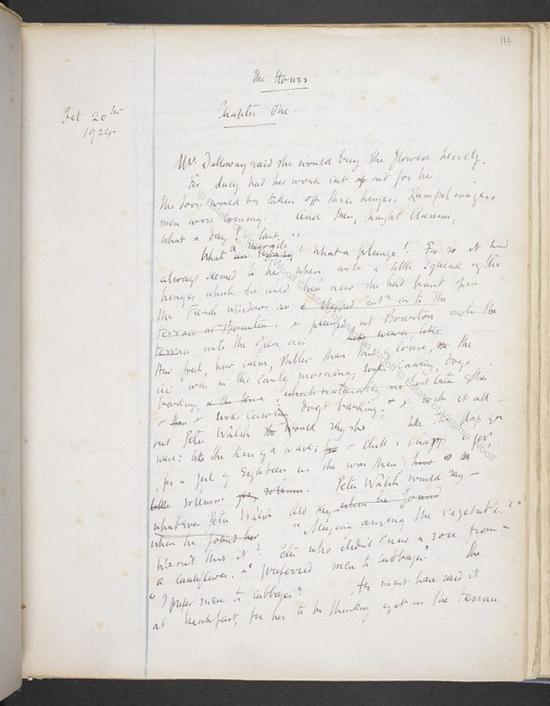 The Hours
Chapter One.
Oct 20th
1924.
Mrs Dalloway said she would buy the flowers herself.
For Lucy had her work cut out for her.
The doors would be taken off their hinges; Rumpelmayers
men were coming. And then, thought Clarissa,
What a day!
What a miracle! what a plunge! For so it had
always seemed to her when, with a little squeak of the
hinges, which she could hear now, she had burst open
the French windows & stepped out on to the
terrace at Bourton. & plunged, at Bourton onto the
terrace into the open air. like waves like
How fresh, how calm, stiller than this of course, the
air was in the early morning; rooks cawing, dogs
barking,
rooks cawing dogs barking; & with it all
Peter Walsh would say she like the flap of a
wave; the kiss of a wave; chill & sharp & yet
for a girl of Eighteen as she was then
solemn. Peter Walsh would say
whatever Peter Walsh did say when he found
when he found her "Musing among the vegetables?"
Wasn't that it? Peter who didn't know a rose from
a cauliflower. "I preferred men to cabbages."
"I prefer men to cabbages". He must have said it
at breakfast, for her to be thinking of it on the terrace